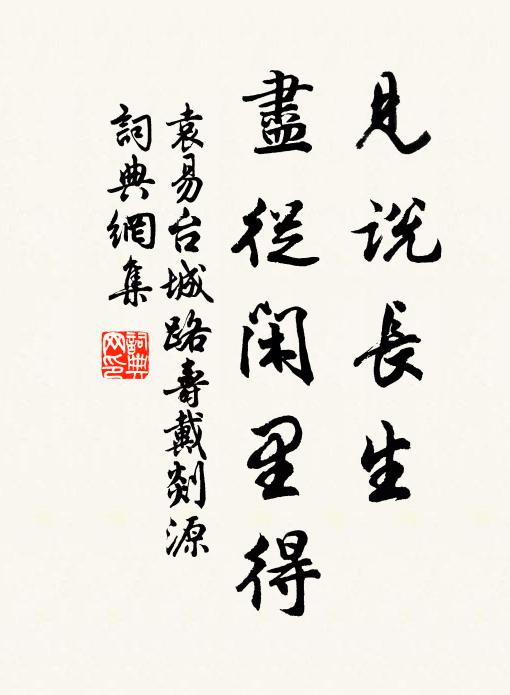 見説長生
盡從閑里得
袁易台城路壽戴剡源
詞典網集
詞典網印